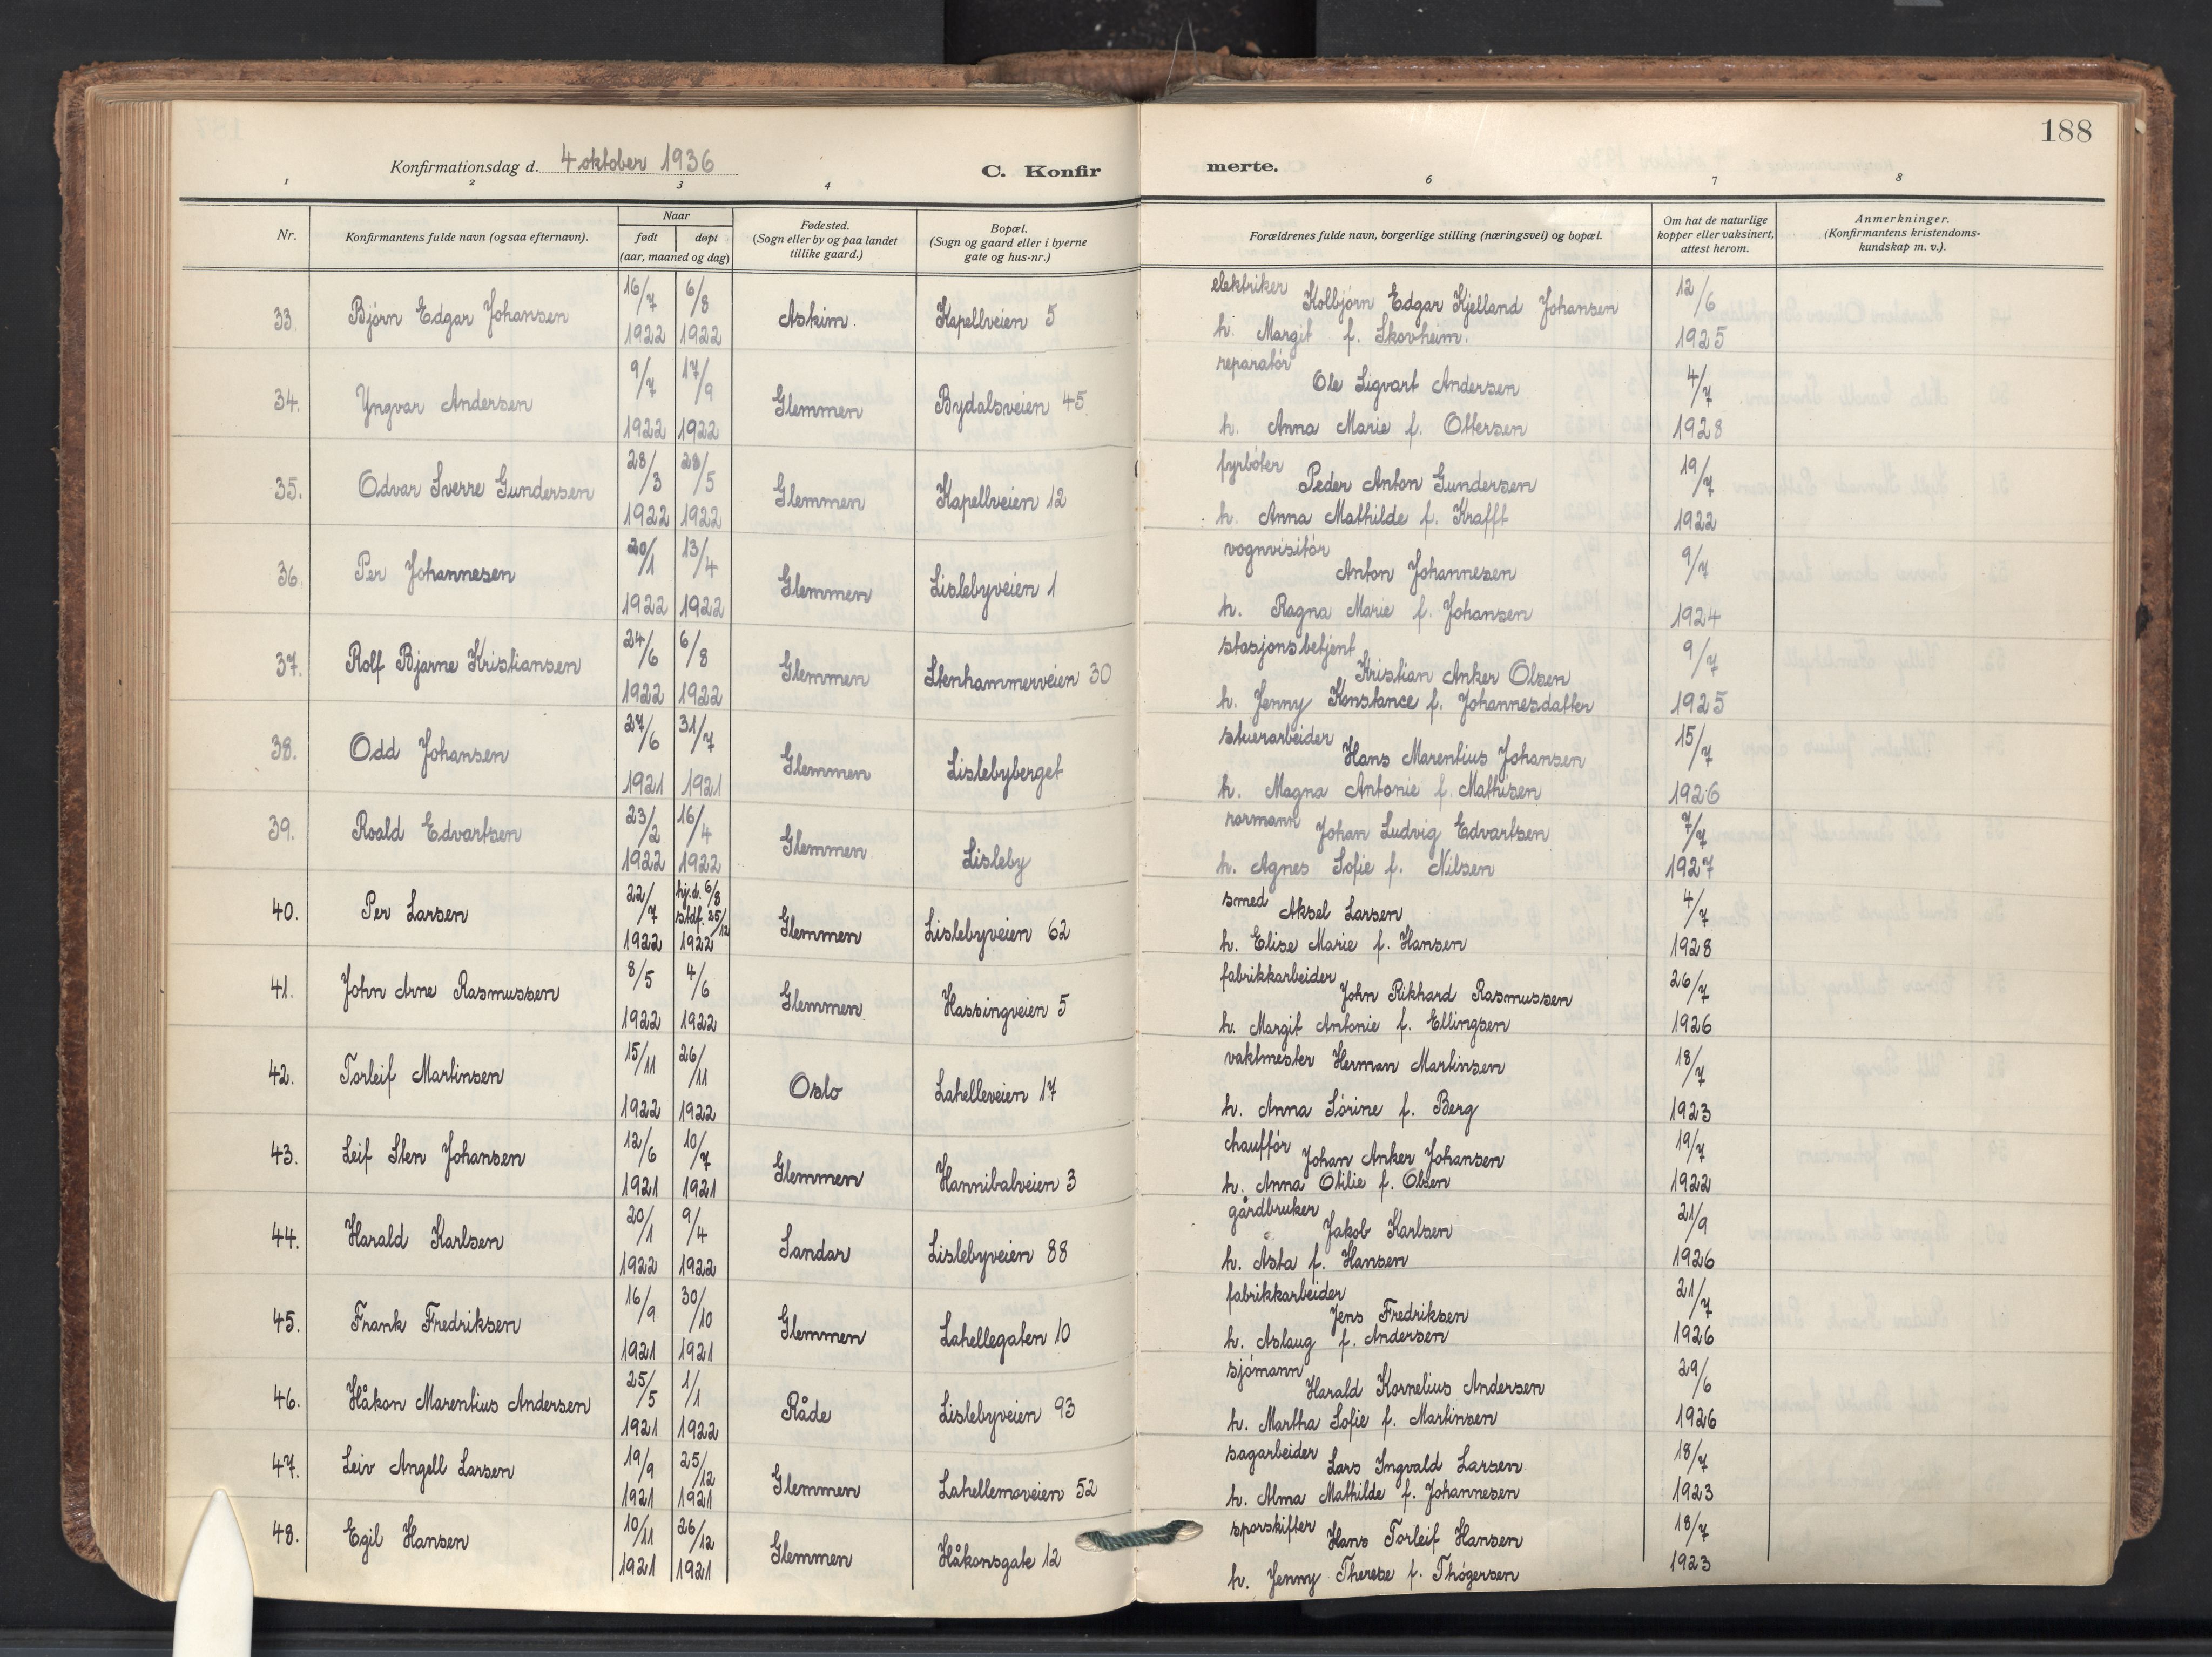 188
Konfirmationsdag d. 4 oktober 1936 C. Konfir merte.
1 2 3 4 6 7 8
Nr. Konfirmantens fulde navn (ogsaa efternavn). Naar født døpt (aar, maaned og dag) Fødested. (Sogn eller by og paa landet tillike gaard.) Bopæl. (Sogn og gaard eller i byerne gate og hus-nr.) Forældrenes fulde navn, borgerlige stilling (næringsvei) og bopæl. Om hat de naturlige kopper eller vaksinert, attest herom. Anmerkninger. (Konfirmantens kristendoms- kundskap m. v.).
33. Bjørn Edgar Johansen 16/7 1922 6/8 1922 Askim. Kapellveien 5 elektriker Kolbjørn Edgar Kjelland Johansen 12/6
h. Margit f. Skovheim. 1925
34. Yngvar Andersen 9/7 1922 17/9 1922 Glemmen Bydalsveien 45 reparatør Ole Sigvart Andersen 4/7
h. Anna Marie f. Ottersen 1928
35. Odvar Sverre Gundersen 28/3 1922 28/5 1922 Glemmen Kapellveien 12 fyrbøter Peder Anton Gundersen 19/7
h. Anna Mathilde f. Krafft 1922
36. Per Johannesen 20/1 1922 13/4 1922 Glemmen Lislebyveien 1 vognvisitør Anton Johannesen 9/7
h. Ragna Marie f. Johansen 1924
37. Rolf Bjarne Kristiansen 24/6 1922 6/8 1922 Glemmen Stenhammerveien 30 stasjonsbetjent Kristian Anker Olsen 9/7
h. Jenny Konstance f. Johannesdatter 1925
38. Odd Johansen 27/6 1921 31/7 1921 Glemmen Lislebyberget stuerarbeider Hans Marentius Johansen 15/7
h. Magna Antonie f. Mathisen 1926
39. Roald Edvartsen 23/2 1922 16/4 1922 Glemmen. Lisleby rørmann Johan Ludvig Edvartsen 7/7
h. Agnes Sofie f. Nilsen 1927
40. Per Larsen 22/7 1922 hj.d. 6/8 stdf. 25/12 1922 Glemmen Lislebyveien 62 smed Aksel Larsen 4/7
h. Elise Marie f. Hansen 1928
41. John Arne Rasmussen 8/5 1922 4/6 1922 Glemmen Hassingveien 5 fabrikkarbeider John Rikhard Rasmussen 26/7
h. Margit Antonie f. Ellingsen 1926
42. Torleif Martinsen 15/11 1922 26/11 1922 Oslo Lahelleveien 17 vaktmester Herman Martinsen 18/7
h. Anna Sørine f. Berg 1923
43. Leif Sten Johansen 12/6 1921 10/7 1921 Glemmen Hannibalveien 3 chauffør Johan Anker Johansen 19/7
h. Anna Otilie f. Olsen 1922
44. Harald Karlsen 20/1 1922 9/4 1922 Sandar Lislebyveien 88 gårdbruker Jakob Karlsen 21/9
h. Asta f. Hansen 1926
45. Frank Fredriksen 16/9 1921 30/10 1921 Glemmen Lahellegaten 10 fabrikkarbeider Jens Fredriksen 21/7
h. Aslaug f. Andersen 1926
46. Håkon Marentius Andersen 25/5 1921 1/1 1922 Råde Lislebyveien 93 sjømann Harald Kornelius Andersen 29/6
h. Martha Sofie f. Martinsen 1926
47. Leiv Angell Larsen 19/9 1921 25/12 1921 Glemmen Lahellemoveien 52 sagarbeider Lars Ingvald Larsen 18/7
h. Alma Mathilde f. Johannesen 1923
48. Egil Hansen 10/11 1921 26/12 1921 Glemmen Håkonsgate 12 sporskifter Hans Torleif Hansen 18/7
h. Jenny Therese f. Thøgersen 1923